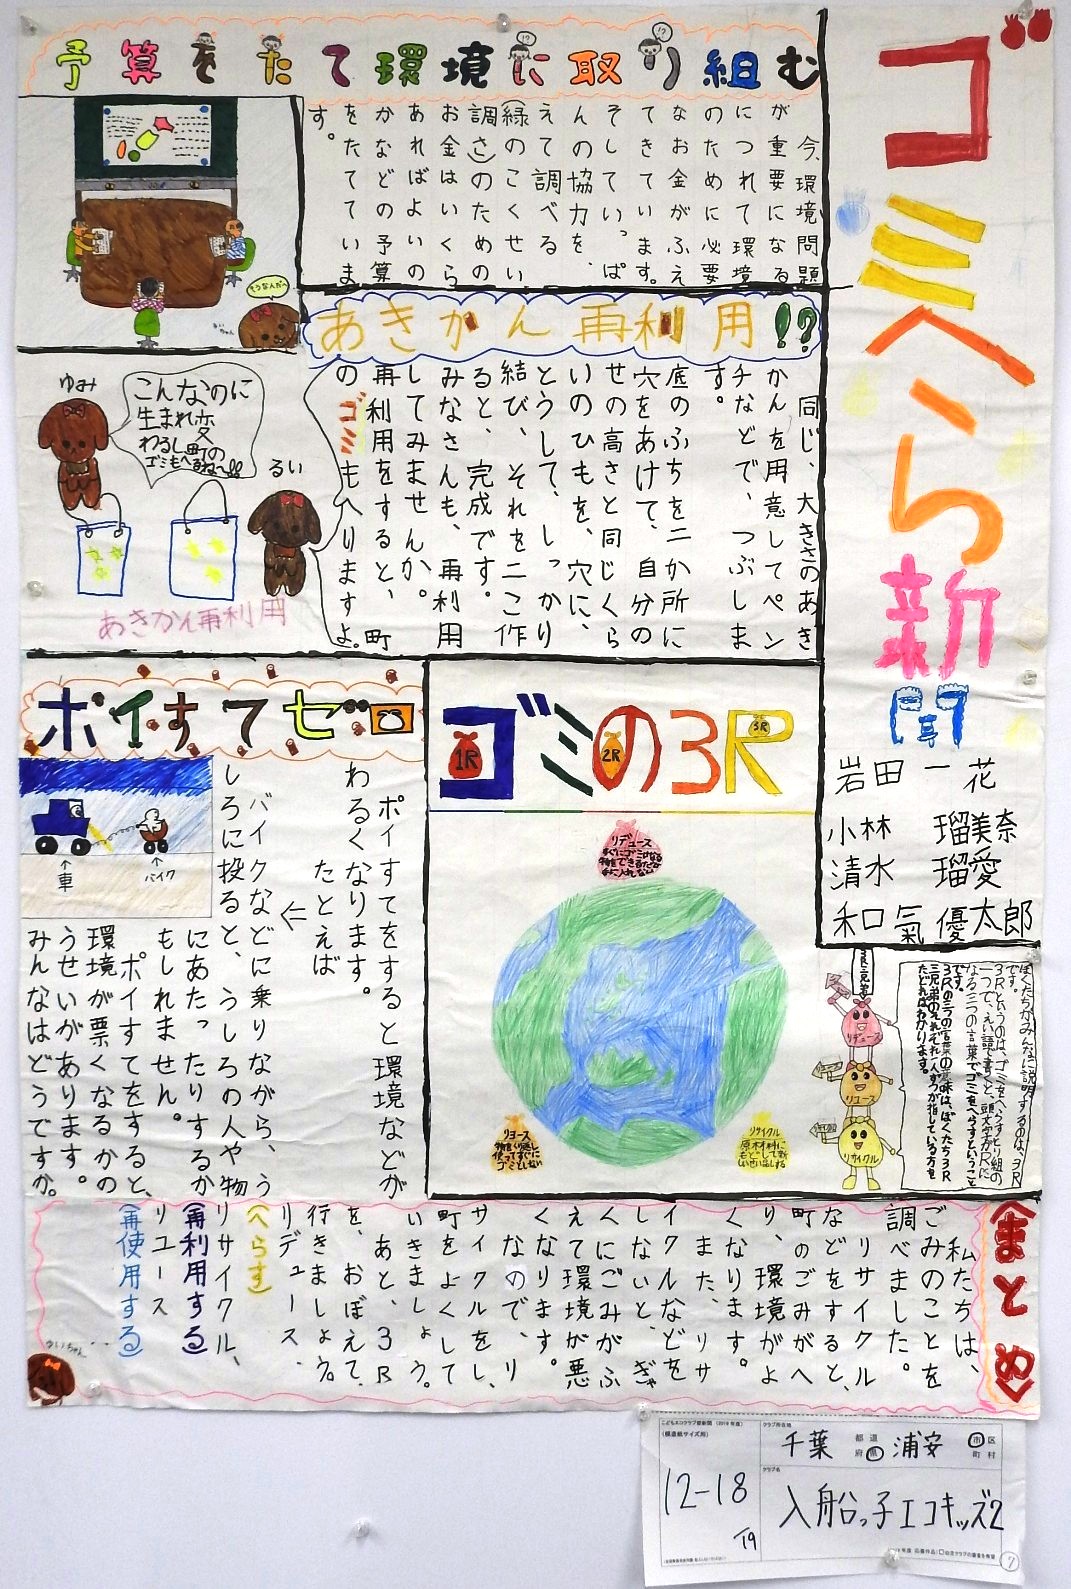 ゴミへら新聞
岩田一花
小林 瑠美奈
清水 瑠愛
和氣優太郎
予算をたて環境に取り組む
今、環境問題
が重要になる
につれて環境
のために必要
なお金がふえ
てきています。
そしていっぱ
んの協力を、
えて調べる
(緑のこくせい
調さ)のための
お金はいくら
あればよいの
かなどの予算
をたてていま
す。
そうなんだへ
るいちゃん
あきかん再利用!?
同じ、大きさのあき
かんを用意してペン
チなどで、つぶしま
す。
底のふちを二か所に
穴をあけて、自分の
せの高さと同じくら
いのひもを、穴に、
とうして、しっかり
結び、それを二こ作
ると、完成です。
みなさんも、再利用
してみませんか。
再利用をすると、町
のゴミもへりますよ。
ゆみ
こんなのに
生まれ変
わるし町の
ゴミもへるね〜!!
るい
あきかん再利用
ポイすてゼロ
ポイすてをすると環境などが
わるくなります。
たとえば
バイクなどに乗りながら、う
しろに投ると、うしろの人や物
にあたったりするか
もしれません。
ポイすてをすると、
環境が悪くなるかの
うせいがあります。
みんなはどうですか。
車
バイク
ゴミの3R
1R
2R
3R
リデュース
すぐにゴミになる
物をできるだけ
手に入れない
リユース
物をくり返し
使ってすぐに
ゴミとしない
リサイクル
原材料に
もどして新
しい製品にする
3R三兄弟
リデュース
リユース
リサイクル
ぼくたちがみんなに説明するのは、3R
です。
3Rというのは、ゴミをへらすとり組の
一つで、えい語で書くと、頭文字がRに
なる三つの言葉でゴミをへらすということ
です。
3Rの三つの言葉の意味は、ぼくたち3R
三兄弟のそれぞれ一人ずつが指している方を
たどればわかります。
(まとめ)
私たちは、
ごみのことを
調べました。
リサイクル
などをすると、
町のごみがへ
り、環境がよ
くなります。
また、リサ
イクルなどを
しないと、ぎゃ
くにごみがふ
えて環境が悪
くなります。
なので、リ
サイクルをし、
町をよくして
いきましょう。
あと、3R
を、おぼえて、
行きましょう。
リデュース、
(へらす)
リサイクル、
(再利用する)
リユース
(再使用する)
るいちゃん
こどもエコクラブ壁新聞(2019年度)
(模造紙サイズ用)
12-18
19
クラブ所在地
千葉 都道府県 浦安 市区町村
クラブ名
入船っ子エコキッズ2
7